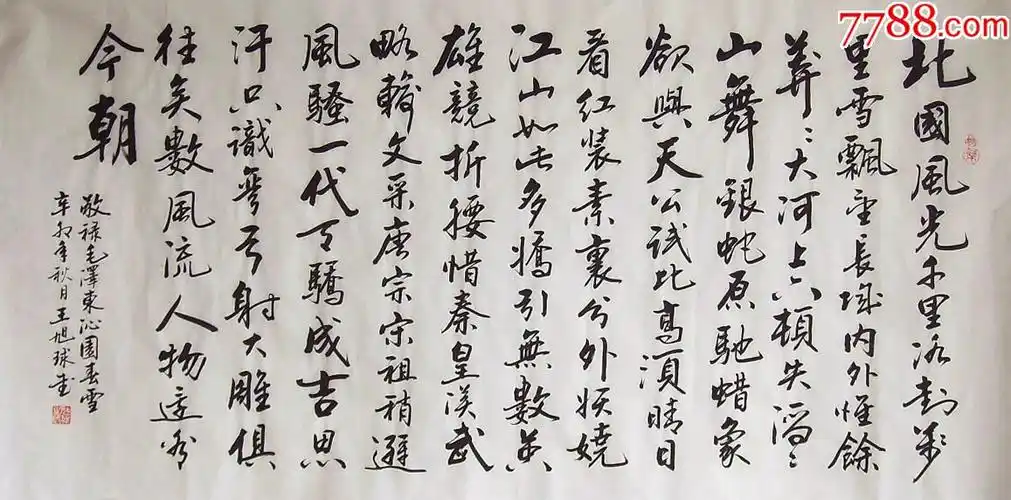 7788.com
北國風光千里冰封萬
里雪飄望長城内外惟餘
莽〻大河上下頓失滔〻
山舞銀蛇原馳蜡象
欲與天公試比高須晴日
看红装素裹分外妖嬈
江山如此多嬌引無數英
雄競折腰惜秦皇漢武
略輸文采唐宗宋祖稍遜
風騷一代天驕成吉思
汗只識彎弓射大雕俱
往矣數風流人物還看
今朝
敬禄毛澤東沁園春雪
辛卯年秋日王旭球書